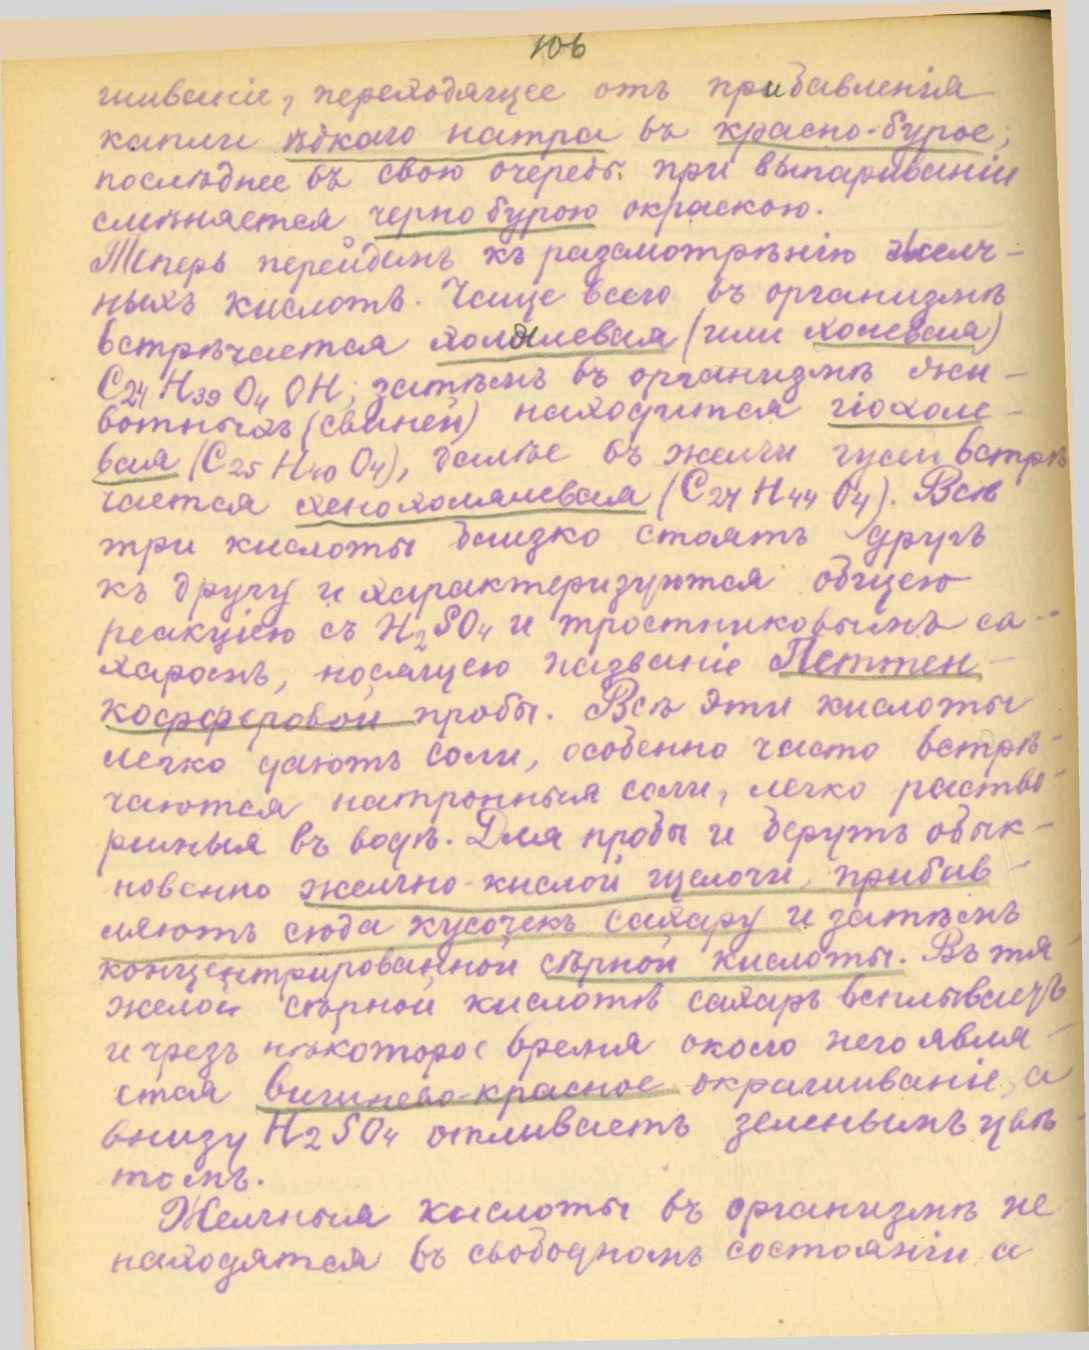 106
шиваніе, переходящее отъ прибавленія
капли ѣдкаго натра въ красно-бурое,
послѣднее въ свою очередь при выпариваніи
смѣняется черно бурою окраскою.
Теперь перейдемъ къ разсмотрѣнію желч-
ныхъ кислотъ. Чаще всего въ организмѣ
встрѣчается холалевая (или холевая)
C24 H39 O4 OH; затѣмъ въ организмѣ жи-
вотныхъ (свиней) находится гіохоле-
вая (C25 H40 O4), далѣе въ желчи гусей встрѣ
чается хенохолалевая (C27 H44 O4). Всѣ
три кислоты близко стоятъ другъ
къ другу и характеризуются общею
реакціею съ H2SO4 и тростниковымъ са-
харомъ, носящею названіе Петтен-
кофферовой пробы. Всѣ эти кислоты
легко даютъ соли, особенно часто встрѣ-
чаются натронныя соли, легко раство-
римыя въ водѣ. Для пробы и берутъ обык-
новенно желчно-кислой щелочи, прибав-
ляютъ сюда кусочекъ сахару и затѣмъ
концентрированной сѣрной кислоты. Въ тя
желой сѣрной кислотѣ сахаръ всплываетъ
и чрезъ нѣкоторое время около него явля-
ется вишнево-красное окрашиваніе, а
внизу H2SO4 отливаетъ зеленымъ цвѣ-
томъ.
Желчныя кислоты въ организмѣ не
находятся въ свободномъ состояніи, а